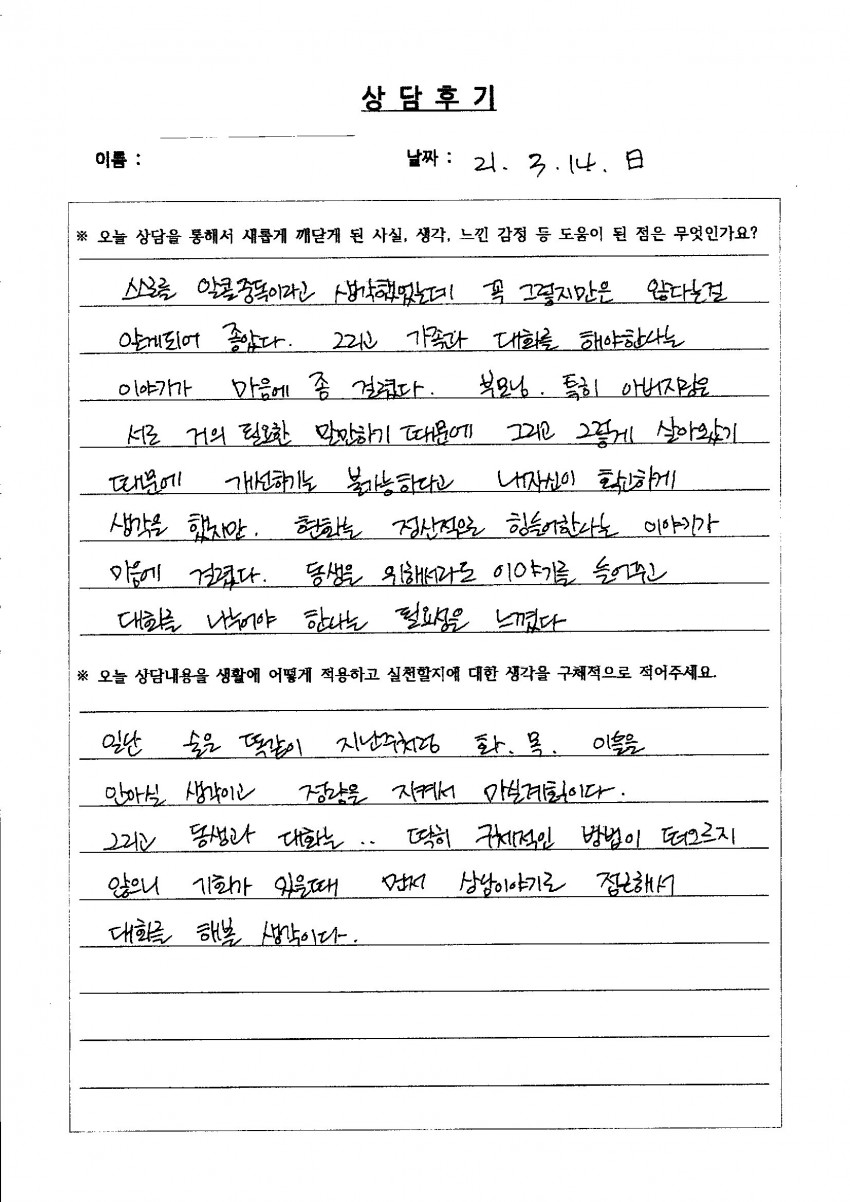 상 담 후 기
이름 :
날짜 : 21. 3. 14. 日
※ 오늘 상담을 통해서 새롭게 깨닫게 된 사실, 생각, 느낀 감정 등 도움이 된 점은 무엇인가요?
스스로를 알콜중독이라고 생각했었는데 꼭 그렇지만은 않다는걸
알게되어 좋았다. 그리고 가족과 대화를 해야한다는
이야기가 마음에 좀 걸렸다. 부모님. 특히 아버지랑은
서로 거의 필요한 말만하기 때문에 그리고 그렇게 살아왔기
때문에 개선하기는 불가능하다고 내자신이 확고하게
생각을 했지만. 정신적으로 힘들어한다는 이야기가
마음에 걸렸다. 동생을 위해서라도 이야기를 들어주고
대화를 나눠야 한다는 필요성을 느꼈다
※ 오늘 상담내용을 생활에 어떻게 적용하고 실천할지에 대한 생각을 구체적으로 적어주세요.
일단 술은 똑같이 지난주처럼 화. 목. 이틀을
안마실 생각이고 정량을 지켜서 마실계획이다.
그리고 동생과 대화는.. 딱히 구체적인 방법이 떠오르지
않으니 기회가 있을때 먼저 이야기로 접근해서
대화를 해볼 생각이다.